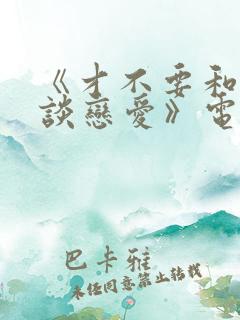 《才不要和
談戀愛》電
巴卡雅
未經同意禁止轉載